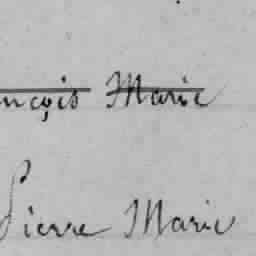 nçois Marie
Pierre Marie